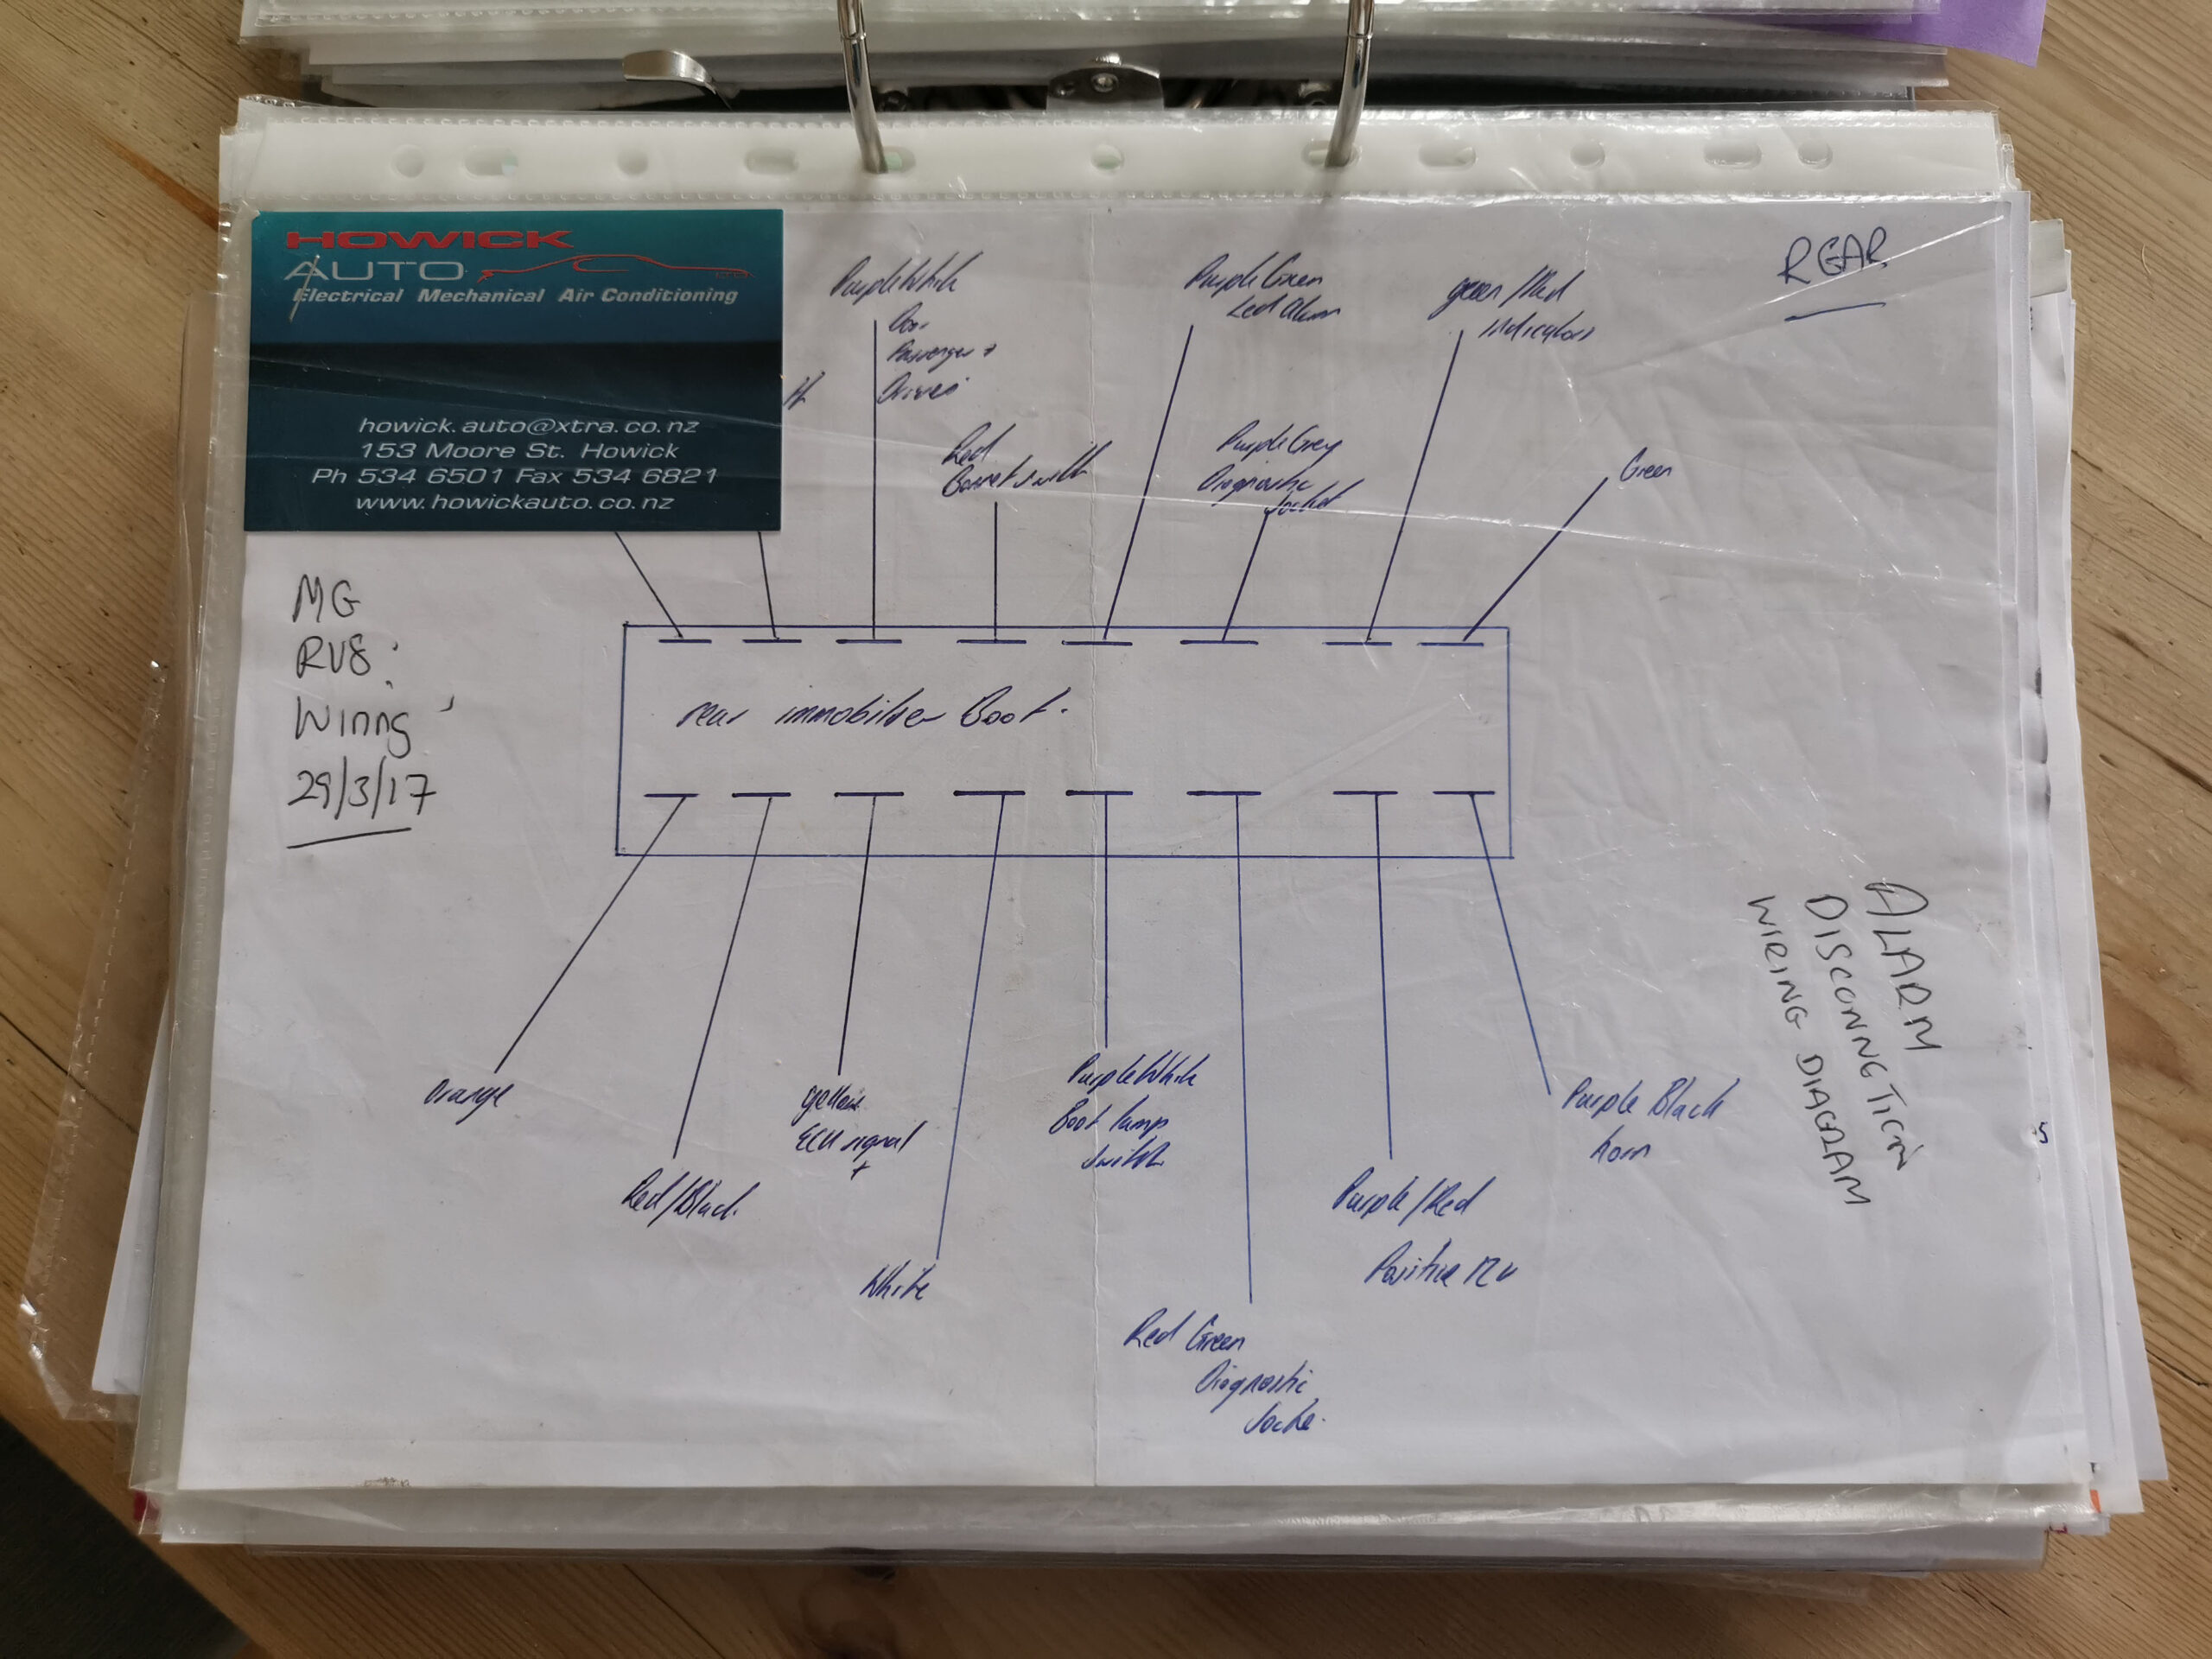 HOWICK
AUTO
Electrical Mechanical Air Conditioning
howick.auto@xtra.co.nz
153 Moore St. Howick
Ph 534 6501 Fax 534 6821
www.howickauto.co.nz
Purple White
Door
Passenger +
Drivers
Red
Bonnet switch
Purple Green
Led Alarm
Purple Grey
Diagnostic
Socket
green/Red
indicators
Green
REAR
MG
RV8
Wiring
29/3/17
rear immobiliser Boot.
Orange
Red/Black
yellow
ECU signal
+
White
Purple White
Boot lamp
switch
Red Green
Diagnostic
Purple/Red
Positive 12v
Purple Black
horn
ALARM
DISCONNECTION
WIRING DIAGRAM